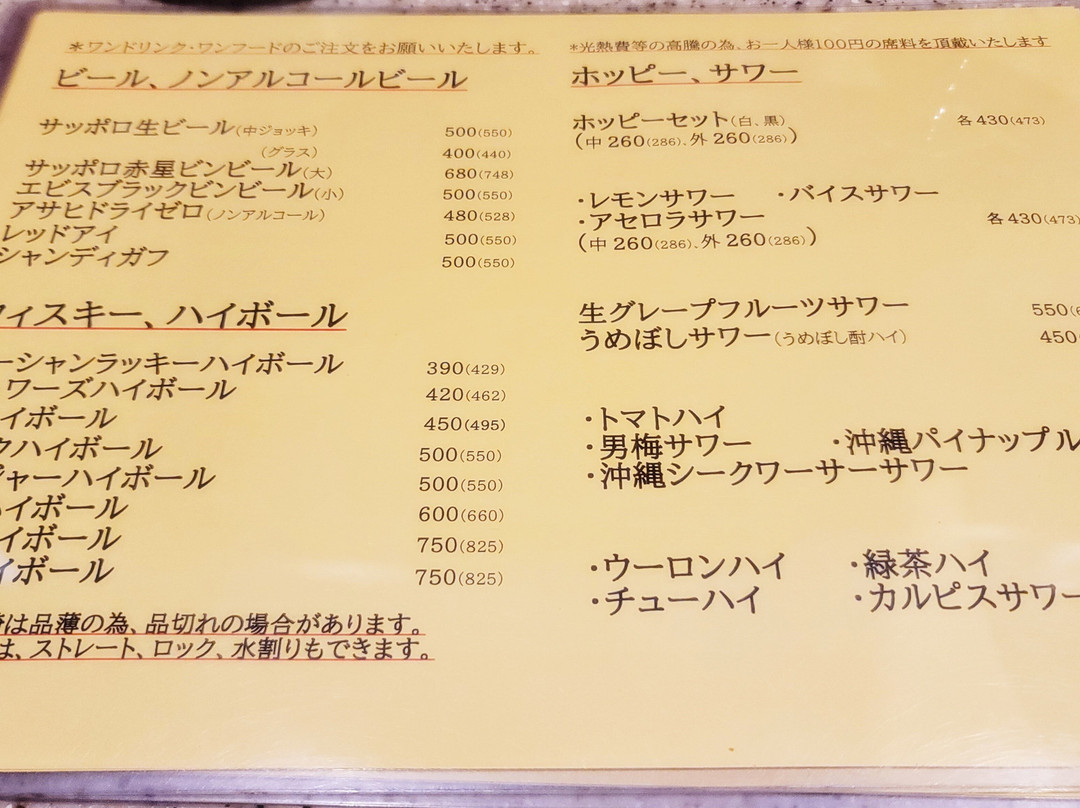 ＊ワンドリンク・ワンフードのご注文をお願いいたします。
ビール、ノンアルコールビール
サッポロ生ビール(中ジョッキ) 500(550)
(グラス) 400(440)
サッポロ赤星ビンビール(大) 680(748)
エビスブラックビンビール(小) 500(550)
アサヒドライゼロ(ノンアルコール) 480(528)
レッドアイ 500(550)
シャンディガフ 500(550)
ィスキー、ハイボール
ーシャンラッキーハイボール 390(429)
ワーズハイボール 420(462)
イボール 450(495)
クハイボール 500(550)
ジャーハイボール 500(550)
ハイボール 600(660)
イボール 750(825)
イボール 750(825)
は品薄の為、品切れの場合があります。
は、ストレート、ロック、水割りもできます。
＊光熱費等の高騰の為、お一人様100円の席料を頂戴いたします
ホッピー、サワー
ホッピーセット(白、黒) 各430(473)
(中260(286)、外260(286))
・レモンサワー ・バイスサワー
・アセロラサワー 各430(473)
(中260(286)、外260(286))
生グレープフルーツサワー 550(
うめぼしサワー(うめぼし酎ハイ) 450
・トマトハイ
・男梅サワー ・沖縄パイナップル
・沖縄シークワーサーサワー
・ウーロンハイ ・緑茶ハイ
・チューハイ ・カルピスサワー